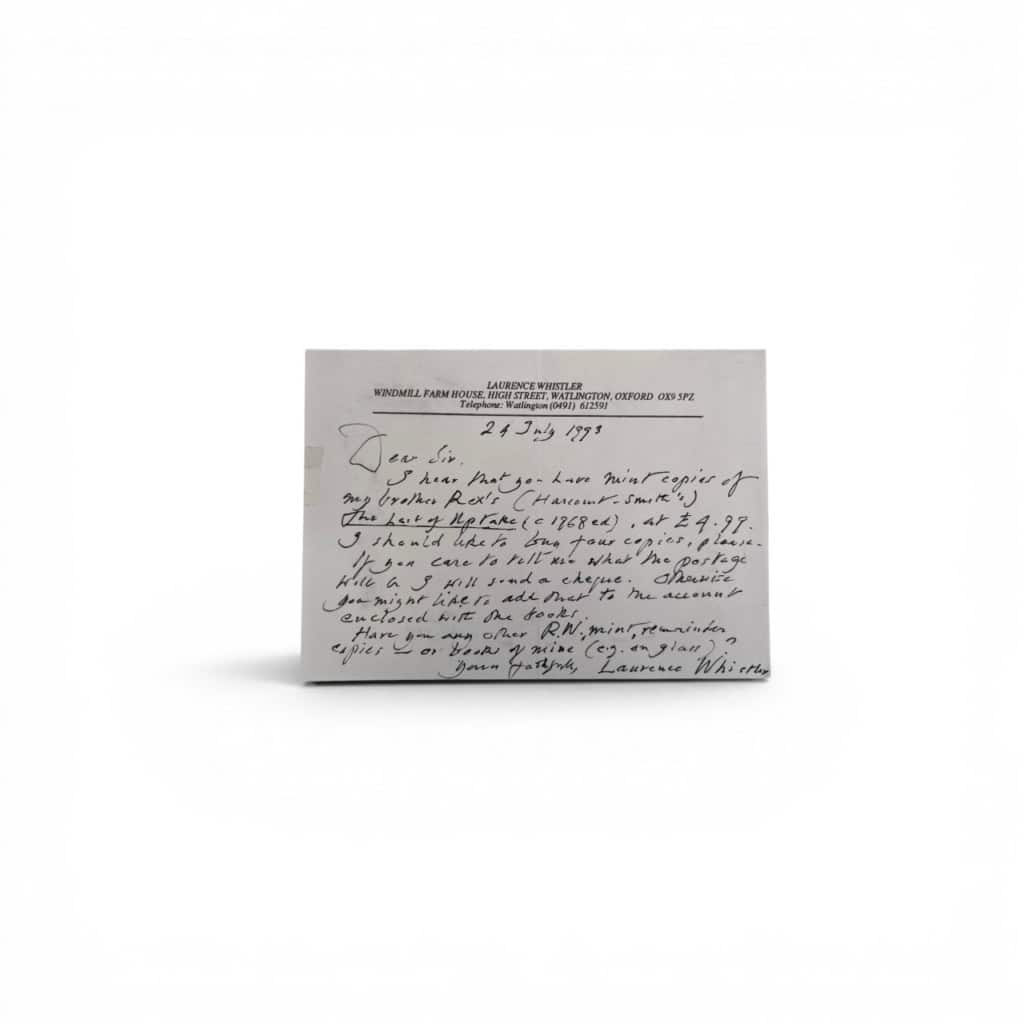 LAURENCE WHISTLER
WINDMILL FARM HOUSE, HIGH STREET, WATLINGTON, OXFORD OX9 5PZ
Telephone: Watlington (0491) 612591
24 July 1993
Dear Sir,
I hear that you have mint copies of
my brother Rex's (Harcourt-Smith's)
The Last of Uptake (c 1968 ed), at £4.99.
I should like to buy four copies, please.
If you care to tell me what the postage
will be I will send a cheque. Otherwise
you might like to add that to the account
enclosed with the books.
Have you any other R.W. mint, remainder
copies — or books of mine (e.g. on glass)?
Yours faithfully, Laurence Whistler